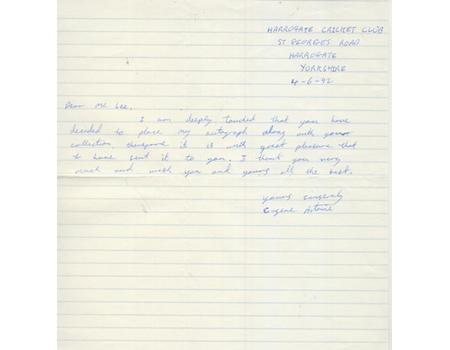 HARROGATE CRICKET CLUB
ST GEORGES ROAD
HARROGATE
YORKSHIRE
4-6-92
Dear Mr Lee,
I am deeply touched that you have
decided to place my autograph along with your
collection, therefore it is with great pleasure that
to have sent it to you. I thank you very
much and wish you and yours all the best.
Yours sincerely
Eugene Antoine